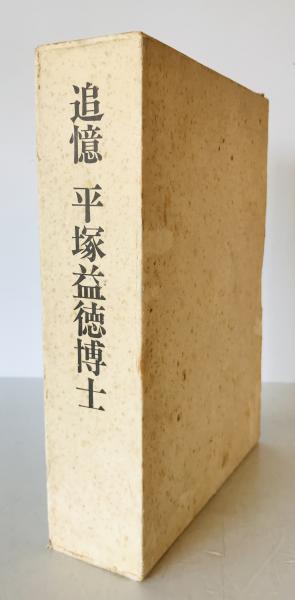 追憶 平塚益徳博士